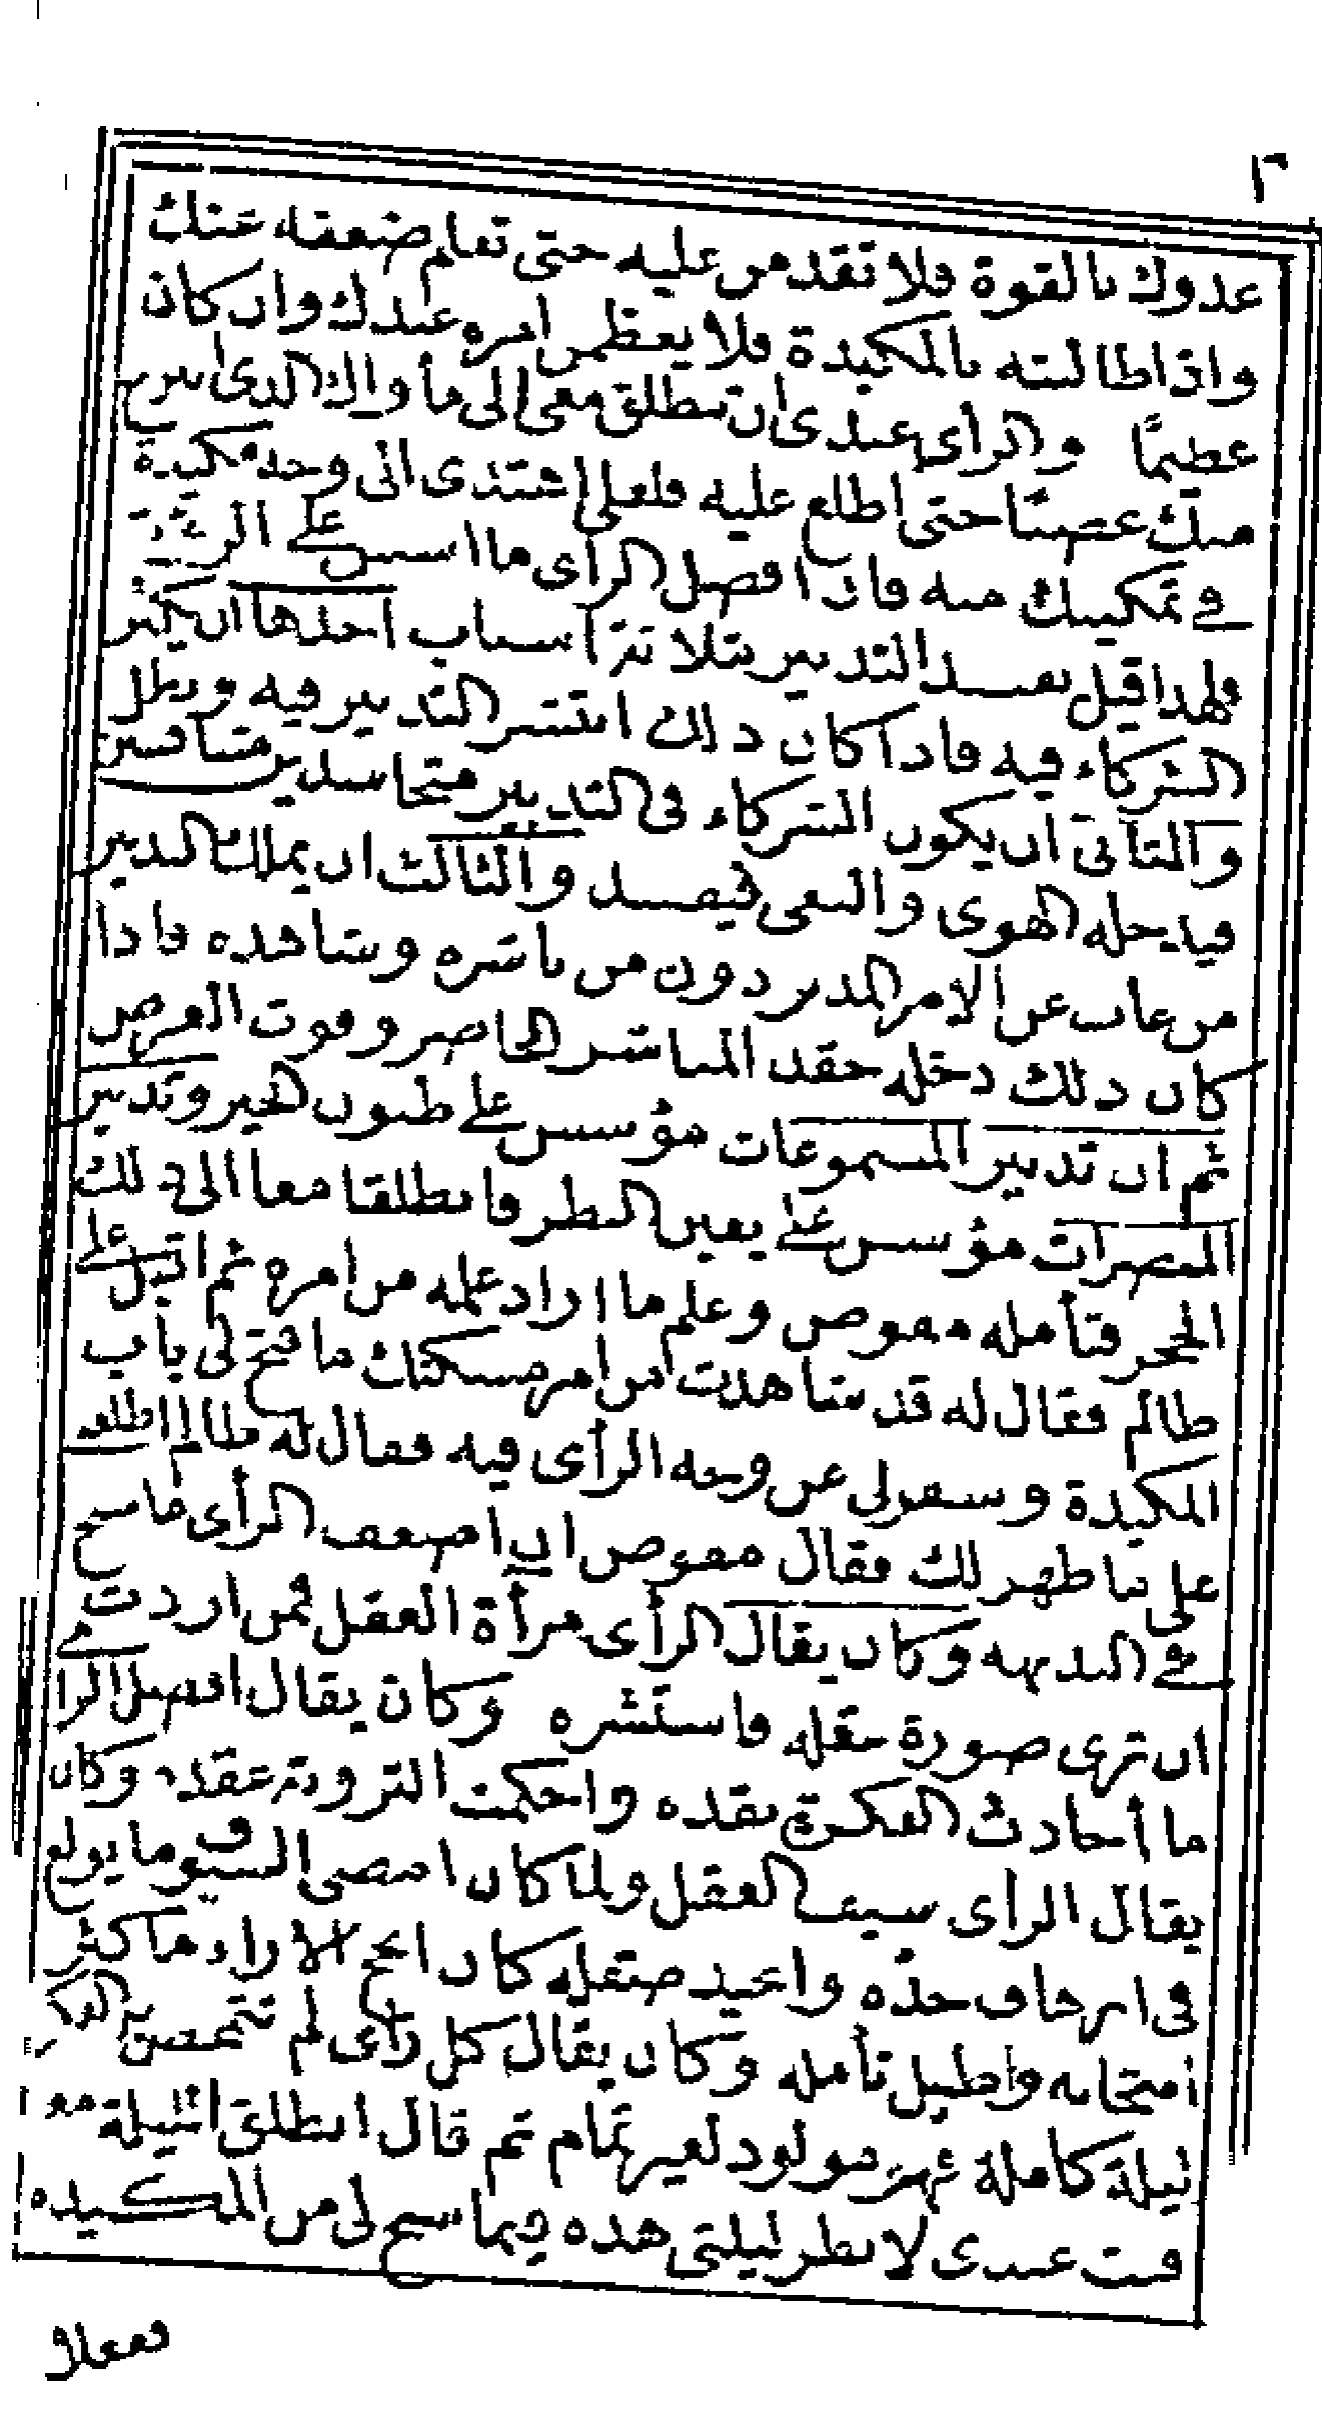 عدوك بالقوة فلا تقدمن عليه حتى تعلم ضعفه عنك
واذا طالبته بالمكيدة فلا يعظمن امره عندك وان كان
عظيمًا والرأى عندى ان تنطلق معى الى مأواك الذى
منك غصبا حتى اطلع عليه فلعلى اهتدى الى وجه مكيدة
فى تمكينك منه فان افضل الرأى ما اسس على
ولهذا قيل يفسد التدبير بثلاثة اسباب احدها ان يكثر
الشركاء فيه فاذا كان ذلك انتشر التدبير فيه وبطل
والثانى ان يكون الشركاء فى التدبير متحاسدين متنافسين
فيدخله الهوى والبغى فيفسد والثالث ان يملك التدبير
من غاب عن الامر المدبر دون من باشره وشاهده فاذا
كان ذلك دخله حقد المباشر الحاضر وفوت الفرص
ثم ان تدبير المسموعات مؤسس على ظنون الخبر وتدبير
المبصرات مؤسس على يقين النظر فانطلقا معا الى ذلك
الجحر فتأمله مفوض وعلم ما اراد علمه من امره ثم اقبل على
ظالم فقال له قد شاهدت من امر مسكنك ما فتح لى باب
المكيدة وسفر لى عن وجه الرأى فيه فقال له ظالم اطلعنى
على ما ظهر لك فقال مفوض ان اضعف الرأى ما سنح
فى البديهه وكان يقال الرأى مرأة العقل فمن اردت
ان ترى صورة عقله فاستشره وكان يقال افضل الرا
ما أجادت الفكرة نقده واحكمت الروية عقده وكان
يقال الرأى سيف العقل ولما كان امضى السيوف ما بولغ
فى ارهاف حده واجيد صقله كان انجح الاراء ما كثر
امتحانه واطيل تأمله وكان يقال كل رأى لم تتمخض به الفكرة
ليلة كاملة فهو مولود لغير تمام ثم قال انطلق الليلة معى
فبت عندى لانظر ليلتى هذه فيما سنح لى من المكيده
ففعلا